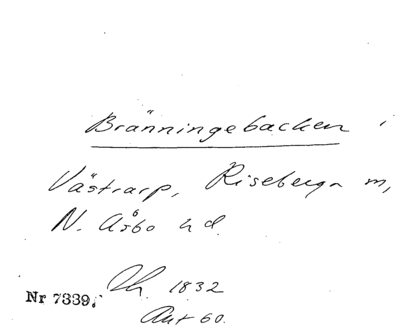 Bränningebacken i
Västrarp, Riseberga m,
N. Åsbo hd.
1832
Nr 7339.
Akt 60.